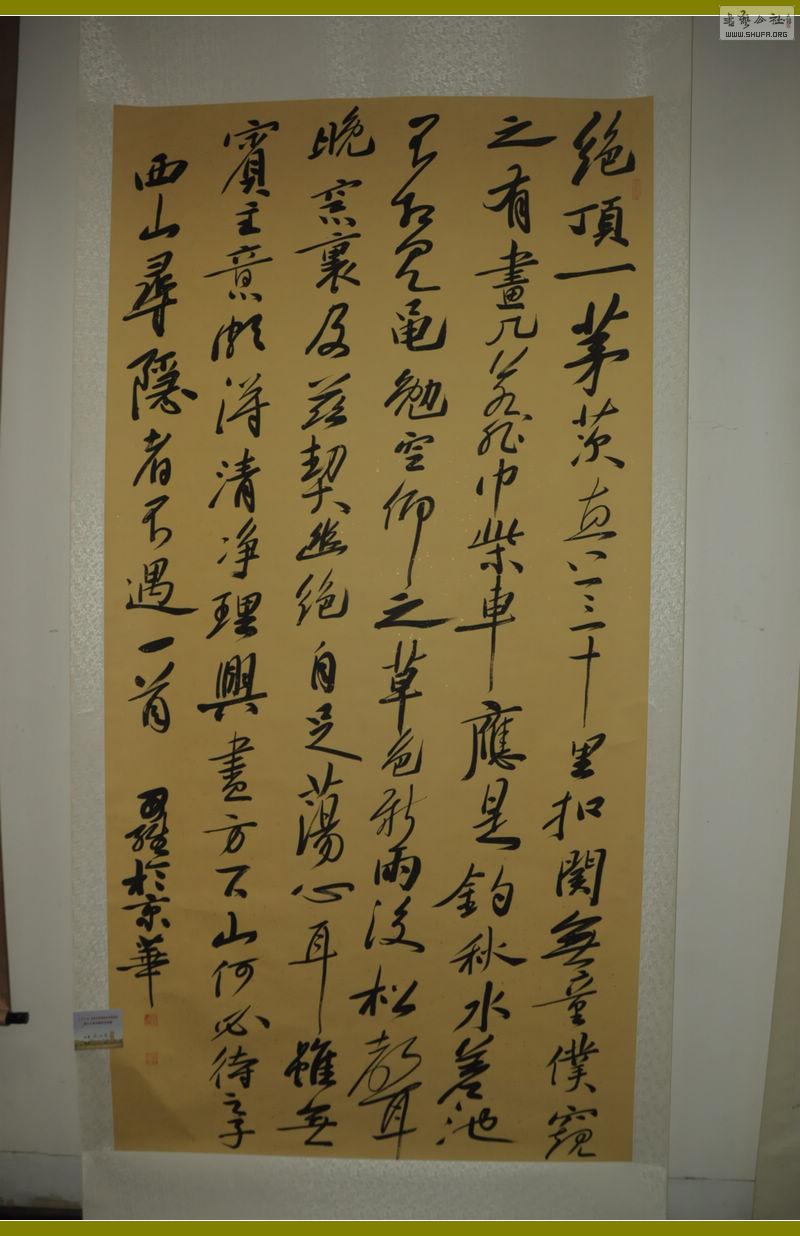 絕頂一茅茨直上三十里扣関無童僕窺
之有畫几若非巾柴車應是釣秋水差池
不相見黽勉空仰之草色新雨後松聲
晚窓裏及茲契幽絕自足蕩心耳雖無
賓主意頗得清净理興盡方下山何必待之子
西山尋隱者不遇一首 於京華
書藝公社
WWW.SHUFA.ORG